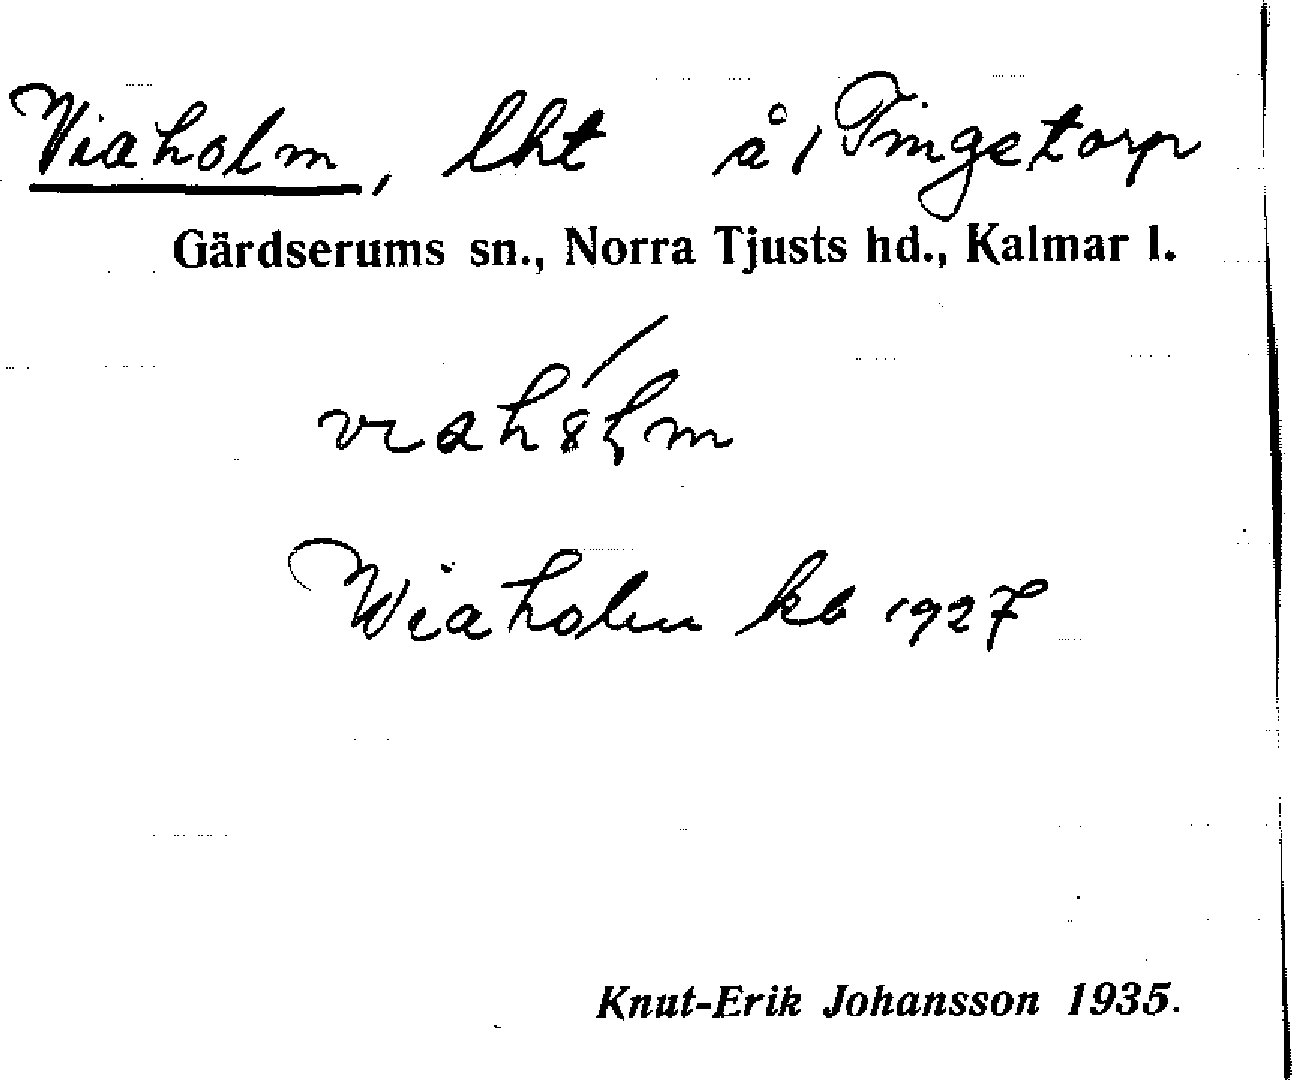 Viaholm, lht å 1 Tingetorp
Gärdserums sn., Norra Tjusts hd., Kalmar l.
Wiaholm kb 1927
Knut-Erik Johansson 1935.